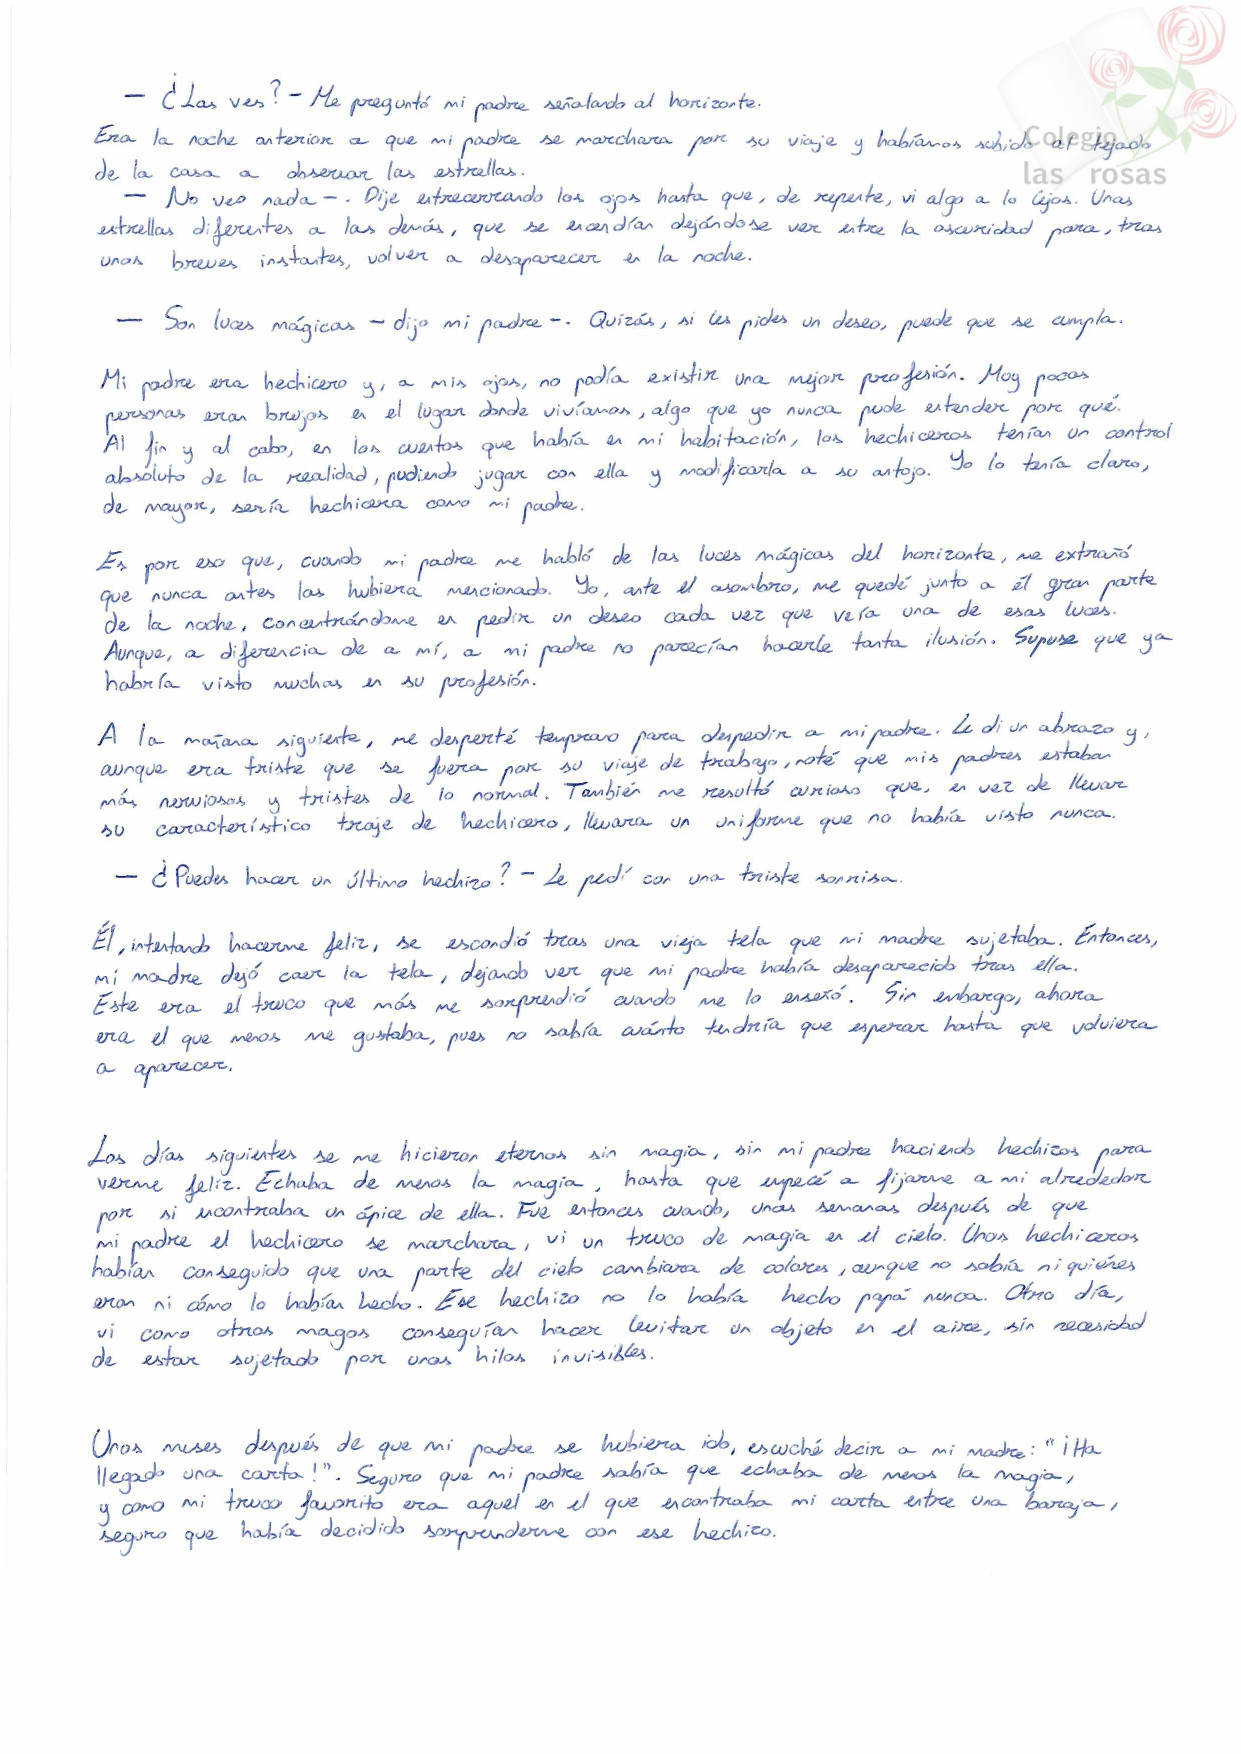 Colegio
las rosas
— ¿Las ves? — Me preguntó mi padre señalando al horizonte.
Era la noche anterior a que mi padre se marchara por su viaje y habíamos subido al tejado
de la casa a observar las estrellas.
— No veo nada —. Dije entrecerrando los ojos hasta que, de repente, vi algo a lo lejos. Unas
estrellas diferentes a las demás, que se encendían dejándose ver entre la oscuridad para, tras
unos breves instantes, volver a desaparecer en la noche.
— Son luces mágicas — dijo mi padre —. Quizás, si les pides un deseo, puede que se cumpla.
Mi padre era hechicero y, a mis ojos, no podía existir una mejor profesión. Muy pocas
personas eran brujos en el lugar donde vivíamos, algo que yo nunca pude entender por qué.
Al fin y al cabo, en los cuentos que había en mi habitación, los hechiceros tenían un control
absóluto de la realidad, pudiendo jugar con ella y modificarla a su antojo. Yo lo tenía claro,
de mayor, sería hechicera como mi padre.
Es por eso que, cuando mi padre me habló de las luces mágicas del horizonte, me extrañó
que nunca antes las hubiera mencionado. Yo, ante el asombro, me quedé junto a él gran parte
de la noche, concentrándome en pedir un deseo cada vez que veía una de esas luces.
Aunque, a diferencia de a mí, a mi padre no parecían hacerle tanta ilusión. Supuse que ya
habría visto muchas en su profesión.
A la mañana siguiente, me desperté temprano para despedir a mi padre. Le di un abrazo y,
aunque era triste que se fuera por su viaje de trabajo, noté que mis padres estaban
más nerviosos y tristes de lo normal. También me resultó curioso que, en vez de llevar
su característico traje de hechicero, llevara un uniforme que no había visto nunca.
— ¿Puedes hacer un último hechizo? — Le pedí con una triste sonrisa.
Él, intentando hacerme feliz, se escondió tras una vieja tela que mi madre sujetaba. Entonces,
mi madre dejó caer la tela, dejando ver que mi padre había desaparecido tras ella.
Este era el truco que más me sorprendió cuando me lo enseñó. Sin embargo, ahora
era el que menos me gustaba, pues no sabía cuánto tendría que esperar hasta que volviera
a aparecer.
Los días siguientes se me hicieron eternos sin magia, sin mi padre haciendo hechizos para
verme feliz. Echaba de menos la magia, hasta que empecé a fijarme a mi alrededor
por si encontraba un ápice de ella. Fue entonces cuando, unas semanas después de que
mi padre el hechicero se marchara, vi un truco de magia en el cielo. Unos hechiceros
habían conseguido que una parte del cielo cambiara de colores, aunque no sabía ni quiénes
eran ni cómo lo habían hecho. Ese hechizo no lo había hecho papá nunca. Otro día,
vi como otros magos conseguían hacer levitar un objeto en el aire, sin necesidad
de estar sujetado por unos hilos invisibles.
Unos meses después de que mi padre se hubiera ido, escuché decir a mi madre: "¡Ha
llegado una carta!". Seguro que mi padre sabía que echaba de menos la magia,
y como mi truco favorito era aquel en el que encontraba mi carta entre una baraja,
seguro que había decidido sorprenderme con ese hechizo.